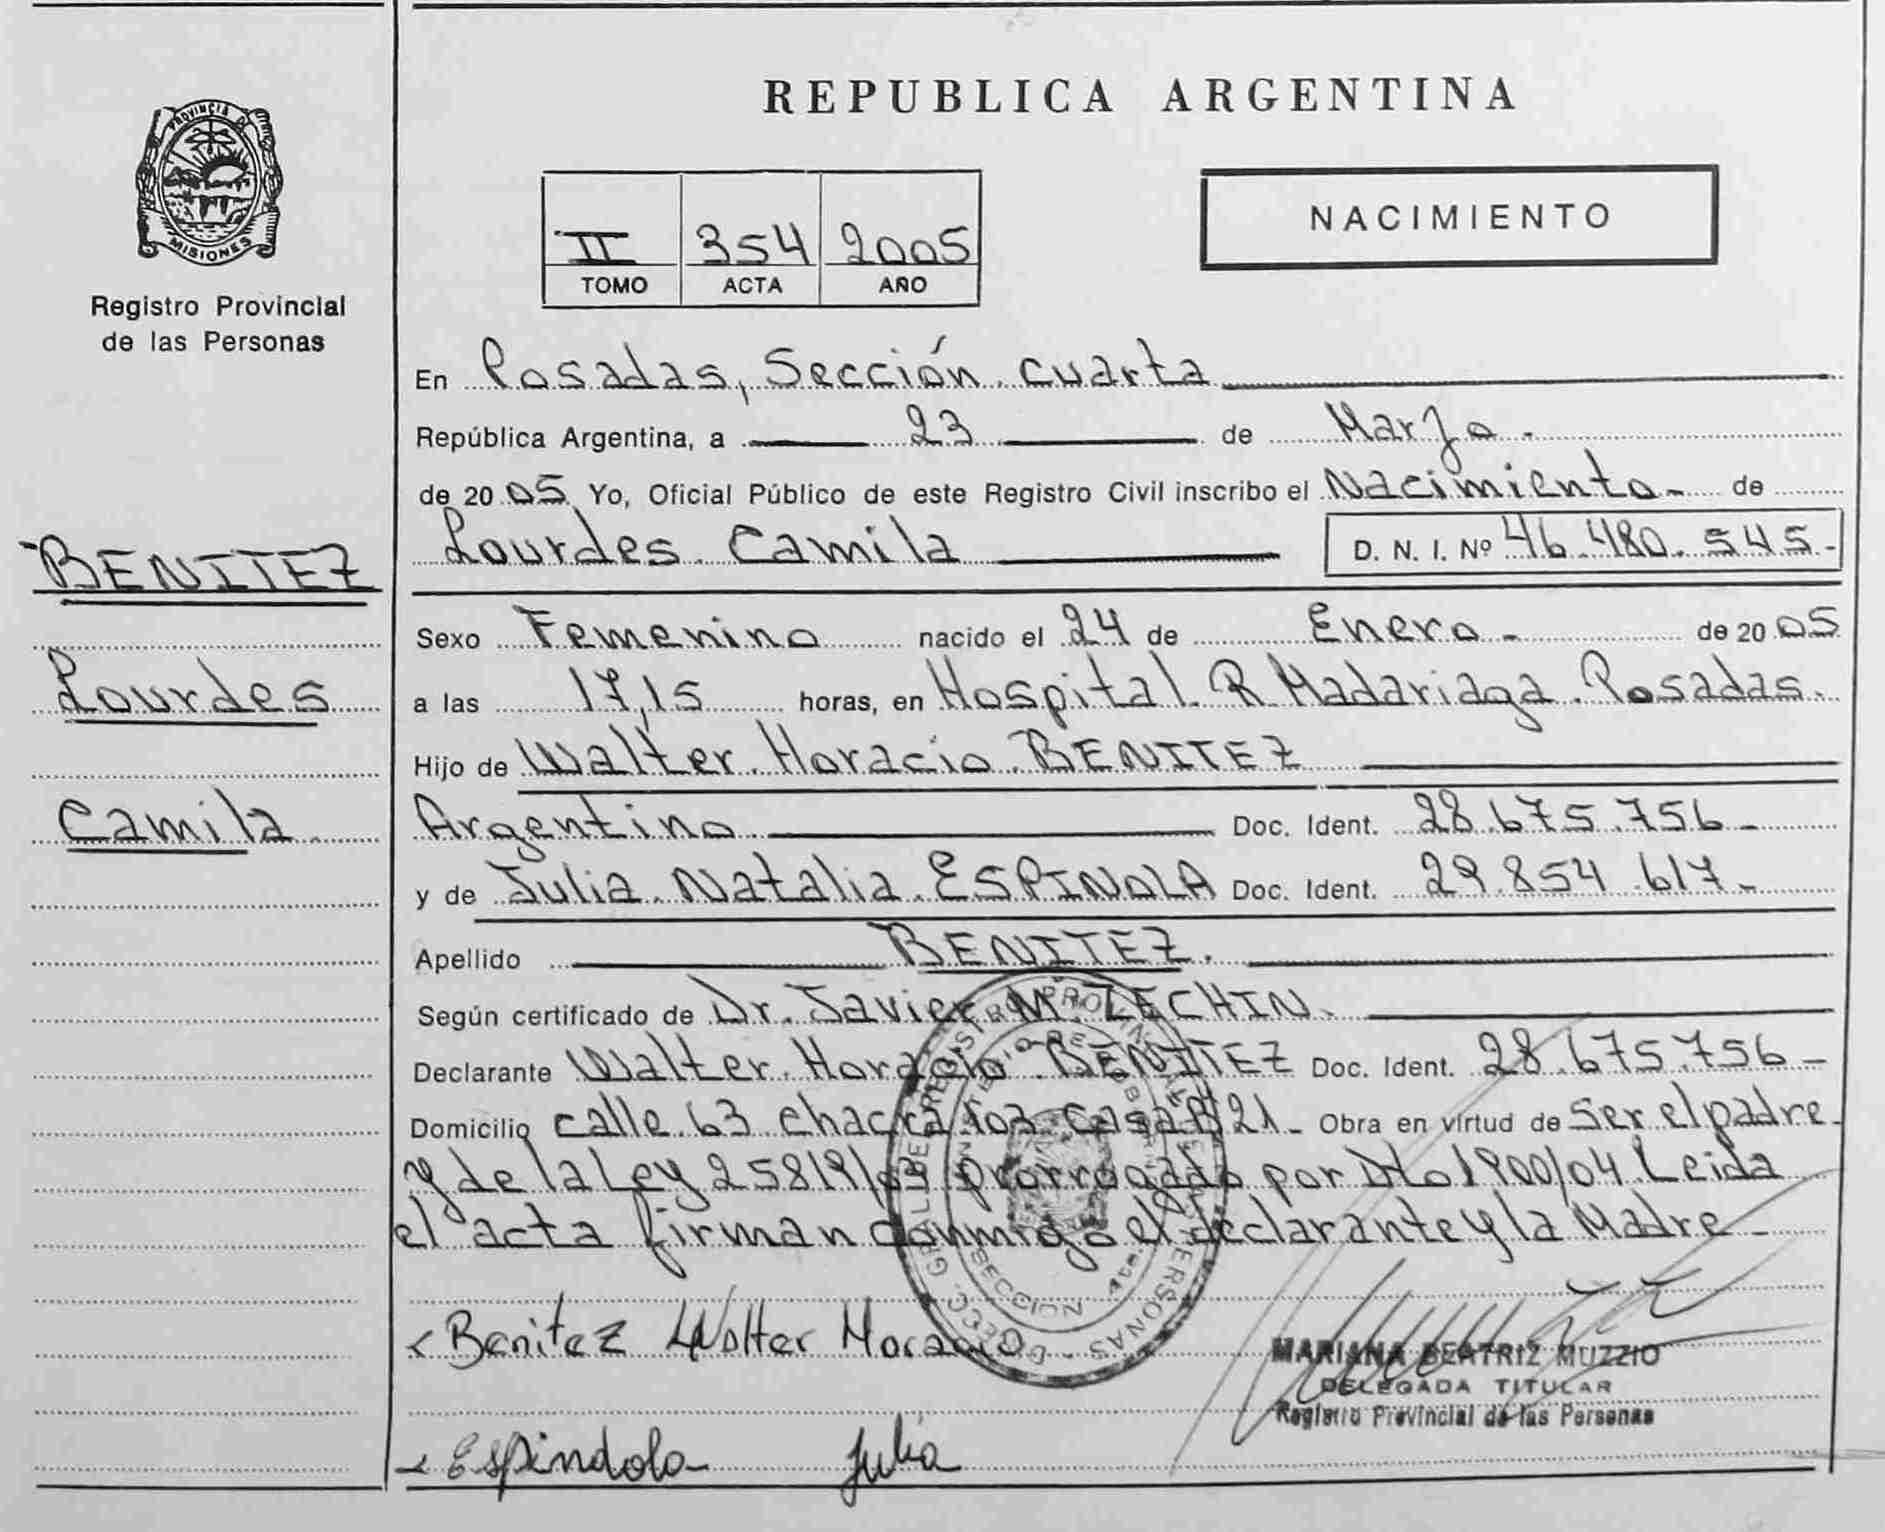 REPUBLICA ARGENTINA
PROVINCIA DE
MISIONES
Registro Provincial
de las Personas
II 354 2005
TOMO ACTA AÑO
NACIMIENTO
En Posadas, Sección cuarta
República Argentina, a 23 de Marzo.
de 2005 Yo, Oficial Público de este Registro Civil inscribo el Nacimiento de
Lourdes Camila D. N. I. Nº 46.480.545.
BENITEZ
Lourdes
Camila
Sexo Femenino nacido el 24 de Enero de 2005
a las 17,15 horas, en Hospital R Madariaga Posadas.
Hijo de Walter Horacio BENITEZ
Argentino Doc. Ident. 28.675.756
y de Julia Natalia ESPINOLA Doc. Ident. 29.854.617
Apellido BENITEZ.
Según certificado de Dr. Javier M. ZECHIN.
Declarante Walter Horacio BENITEZ Doc. Ident. 28.675.756
Domicilio calle 63 chacra 103 casa 21 Obra en virtud de Ser el padre
y de la Ley 25819/03 prorrogado por Dto 1900/04. Leida
el acta firman conmigo el declarante y la Madre
Benitez Walter Horacio
MARIANA BEATRIZ MUZZIO
DELEGADA TITULAR
Registro Provincial de las Personas
Espindola Julia